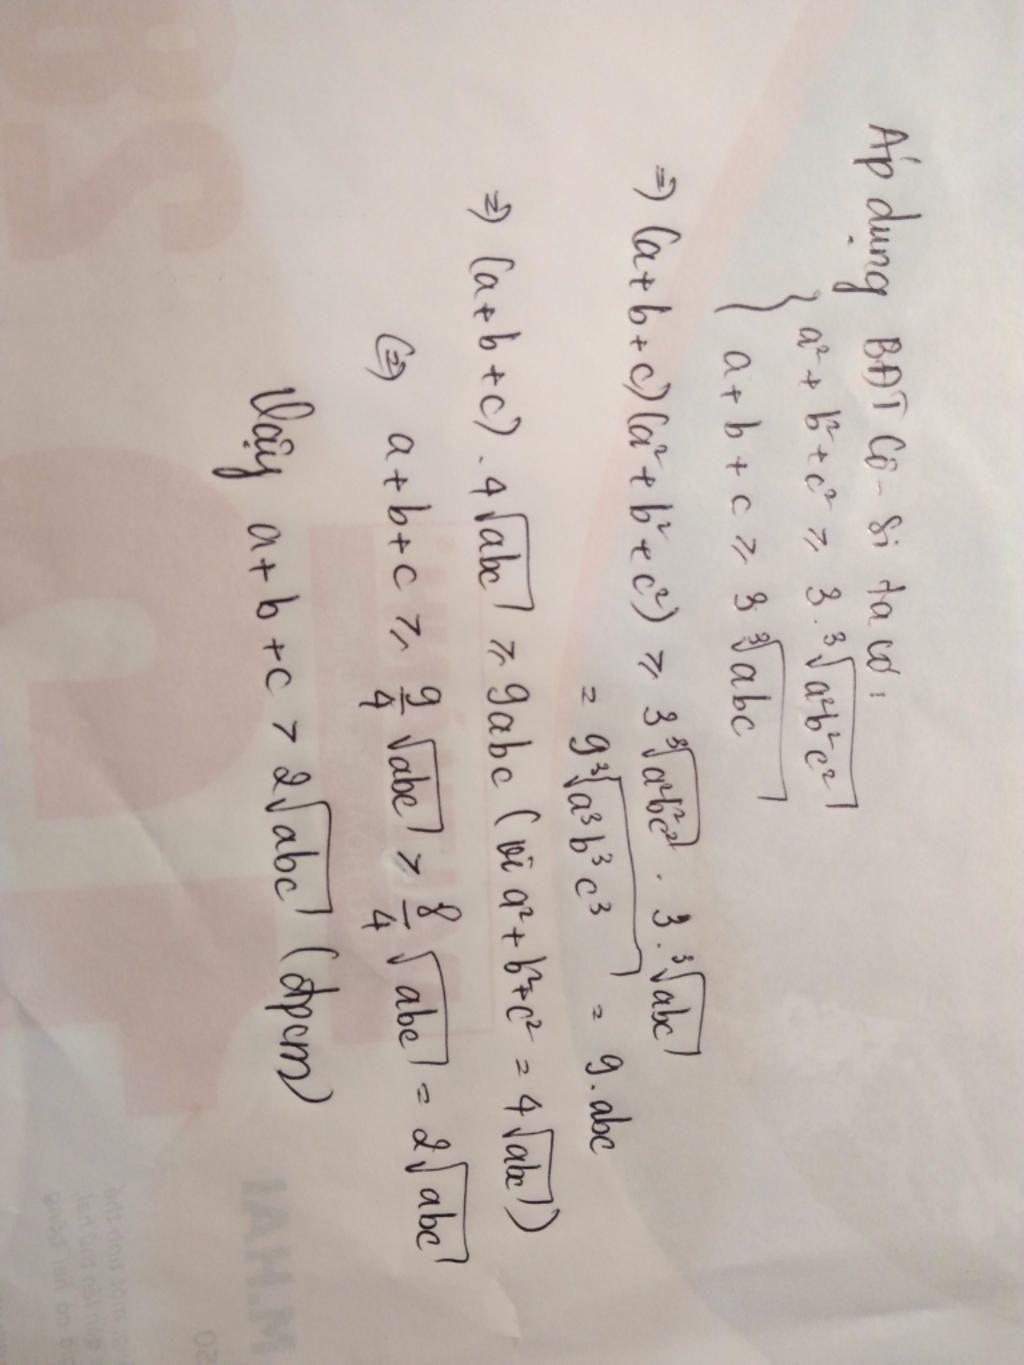 Áp dụng BĐT Cô-si ta có:
{ a² + b² + c² ≥ 3.∛a²b²c²
a + b + c ≥ 3 ∛abc
=> (a+b+c)(a²+b²+c²) ≥ 3∛a²b²c² . 3.∛abc
= 9∛a³b³c³ = 9.abc
=> (a+b+c).4√abc ≥ 9abc (vì a²+b²+c² = 4√abc)
(=) a+b+c ≥ 9/4 √abc > 8/4 √abc = 2√abc
Vậy a+b+c > 2√abc (đpcm)
M.HAI